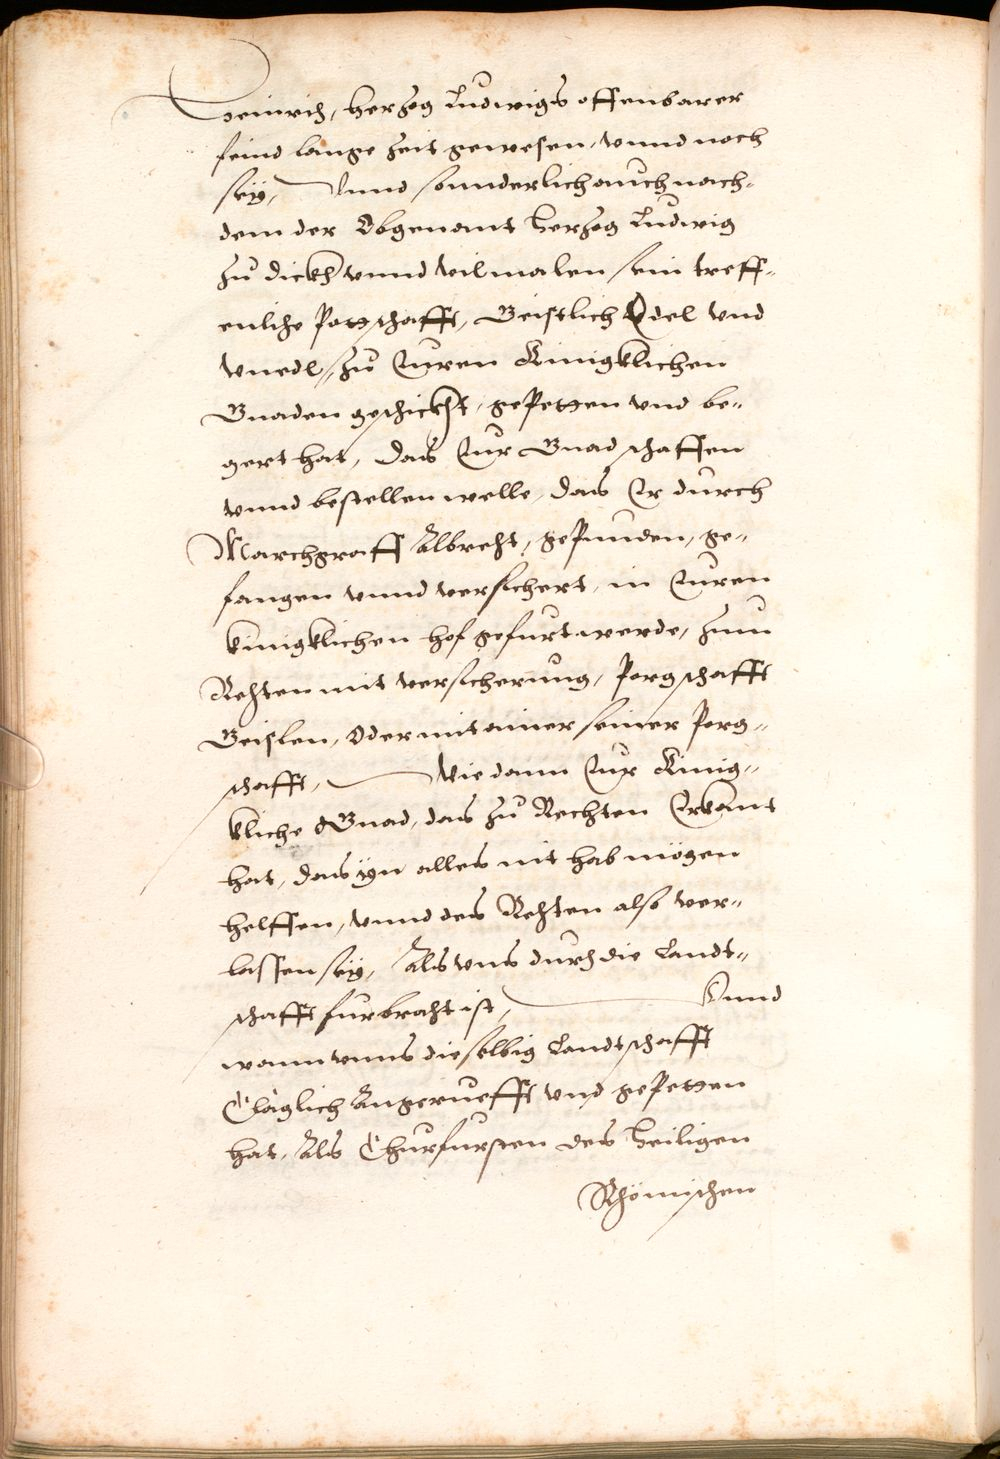 Heinrich, Herzog Ludwigs offenbarer
feind lange Zeit gewesen, vnnd noch
seÿ, Vnnd sonnderlich auch nach„
dem der Obgenant Herzog Ludwig
zu dickh vnnd vilmalen sein treff„
enliche Potschafft, Geistlich Edel vnd
vnedl, zu Euren Künigklichen
Gnaden geschickht, gepetten vnd be„
gert hat, das Eur Gnad schaffen
vnnd bestellen welle, das Er durch
Marchgraff Albrecht, gepunden, ge„
fangen vnnd versichert, in Euren
künigklichen hof gefürt werde, zum
Rechten mit versicherung, Porgschafft
Geislen, Oder mit ainer seiner Porg„
schafft, Wie dann Eur Künig„
kliche Gnad, das zu Rechten Erkannt
hat, das yn alles nit hab mögen
helffen, vnnd des Rechten also ver„
lassen seÿ, Als vns durch die Landt„
schafft fürbracht ist, Vnnd
wann vnns dieselbig Landtschafft
Cläglich Angerüefft vnd gepetten
hat, Als Churfürsten des Heiligen
Rhömischen